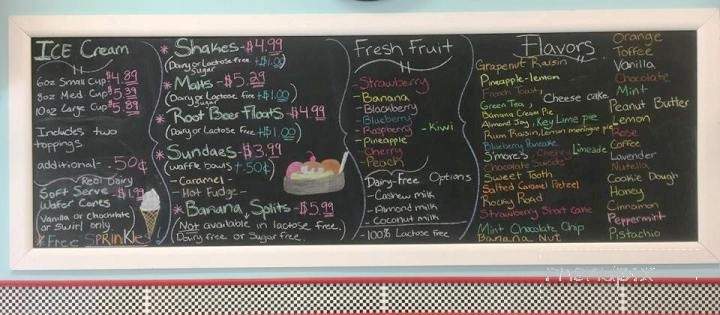 ICE Cream
6oz Small Cup $4.89
8oz Med Cup $5.39
10oz Large Cup $5.89
Includes two
toppings
additional - .50¢
Real Dairy
Soft Serve - $1.99
Wafer Cones
Vanilla or chocolate
or swirl only
*Free SPRINKLE
* Shakes - $4.99
(Dairy or Lactose free +$1.00)
Sugar
* Malts - $5.29
(Dairy or Lactose free +$1.00)
Sugar
* Root Beer Floats - $4.99
(Dairy or Lactose free +$1.00)
* Sundaes - $3.99
(waffle bowls + .50¢)
- Caramel -
- Hot Fudge -
* Banana Splits - $5.99
Not available in lactose free,
Dairy free or Sugar free.
Fresh Fruit
- Strawberry
- Banana
- Blackberry
- Blueberry
- Raspberry - Kiwi
- Pineapple
- Cherry
- Peach
Dairy-Free Options
- Cashew milk
- Almond milk
- Coconut milk
- 100% Lactose free
Flavors
Grapenut Raisin
Pineapple-lemon
French Toast,
Green Tea, Cheese cake,
Banana Cream Pie,
Almond Joy, Key Lime pie
Rum Raisin, Lemon meringue pie
Blueberry Pancake,
S'mores Limeade
Chocolate
Sweet Tooth
Salted Caramel Pretzel
Rocky Road
Strawberry Short cake
Mint Chocolate Chip
Banana Nut
Orange
Toffee
Vanilla
Chocolate
Mint
Peanut Butter
Lemon
Rose
Coffee
Lavender
Nutella
Cookie Dough
Honey
Cinnamon
Peppermint
Pistachio